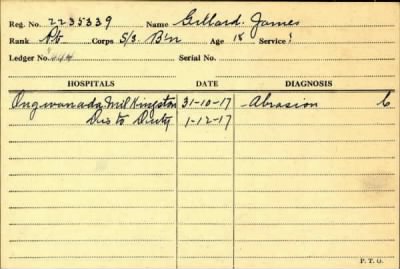 Reg. No. 2235339 Name Gillard. James
Rank Pte Corps S/S. B'n Age 18 Service
Ledger No. 444 Serial No.
HOSPITALS DATE DIAGNOSIS
Ongwanada Mil Kingston 31-10-17 Abrasion
Dis to Duty 1-12-17
P. T. O.